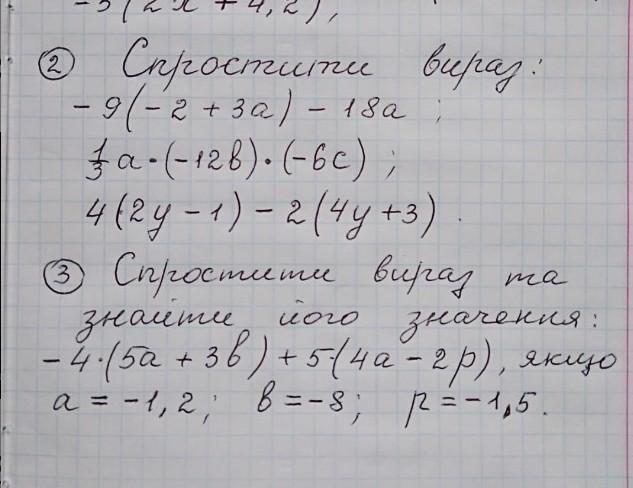 -3(2x + 4,2);
② Спростити вираз:
-9(-2 + 3a) - 18a ;
1/3 a·(-12в)·(-6c) ;
4(2y - 1) - 2(4y + 3) .
③ Спростити вираз та
знайти його значення:
-4·(5a + 3в) + 5·(4a - 2p), якщо
a = -1,2; в = -8; p = -1,5.